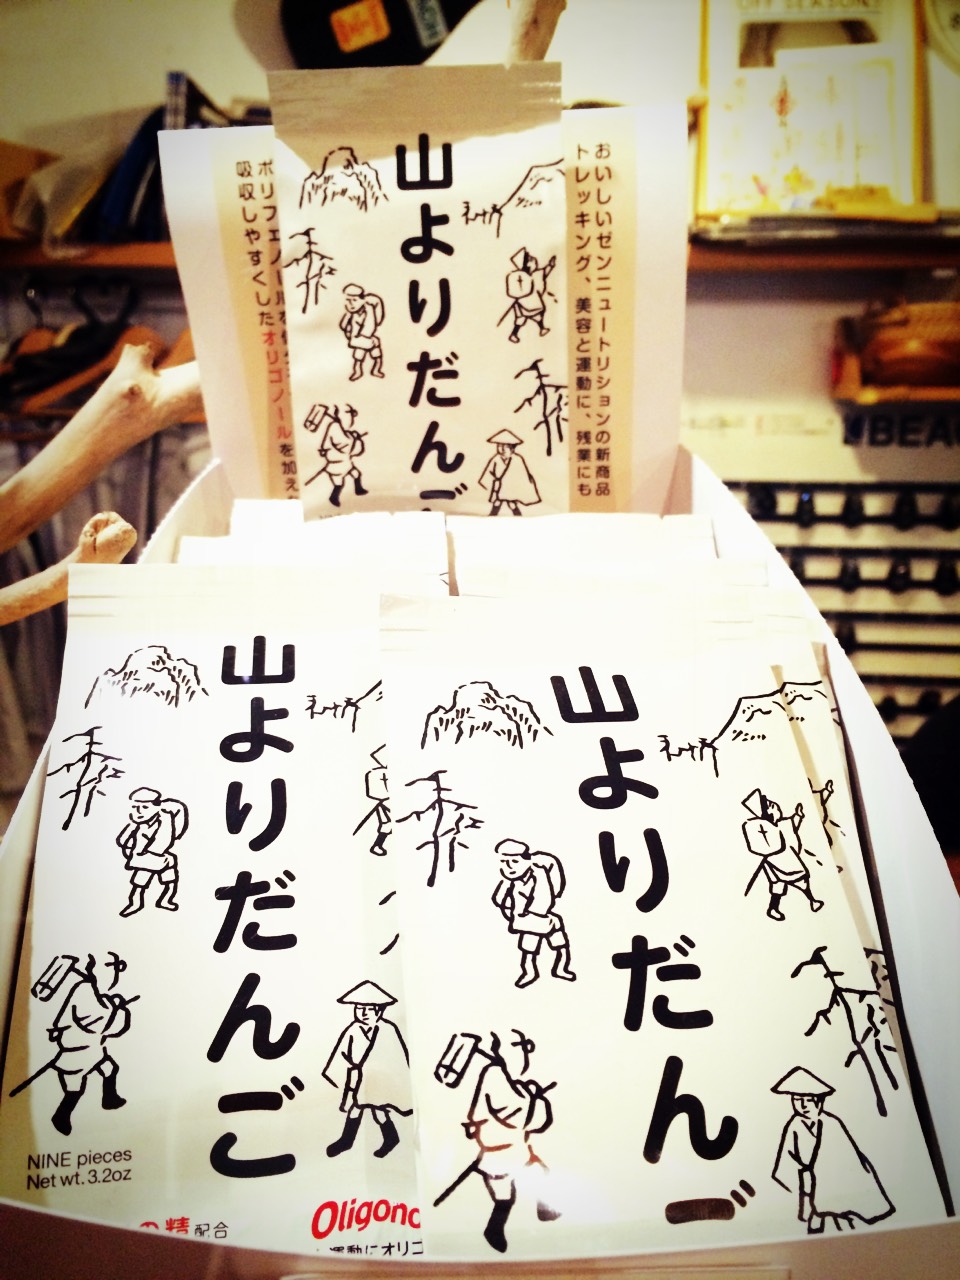 OFF SEASON
山よりだんご
おいしいゼンニュートリションの新商品
トレッキング、美容と運動に、残業にも
ポリフェノールを
吸収しやすくしたオリゴノールを加え
BEA
山よりだんご
NINE pieces
Net wt. 3.2oz
の精配合
Oligono
運動にオリゴ
山よりだんご